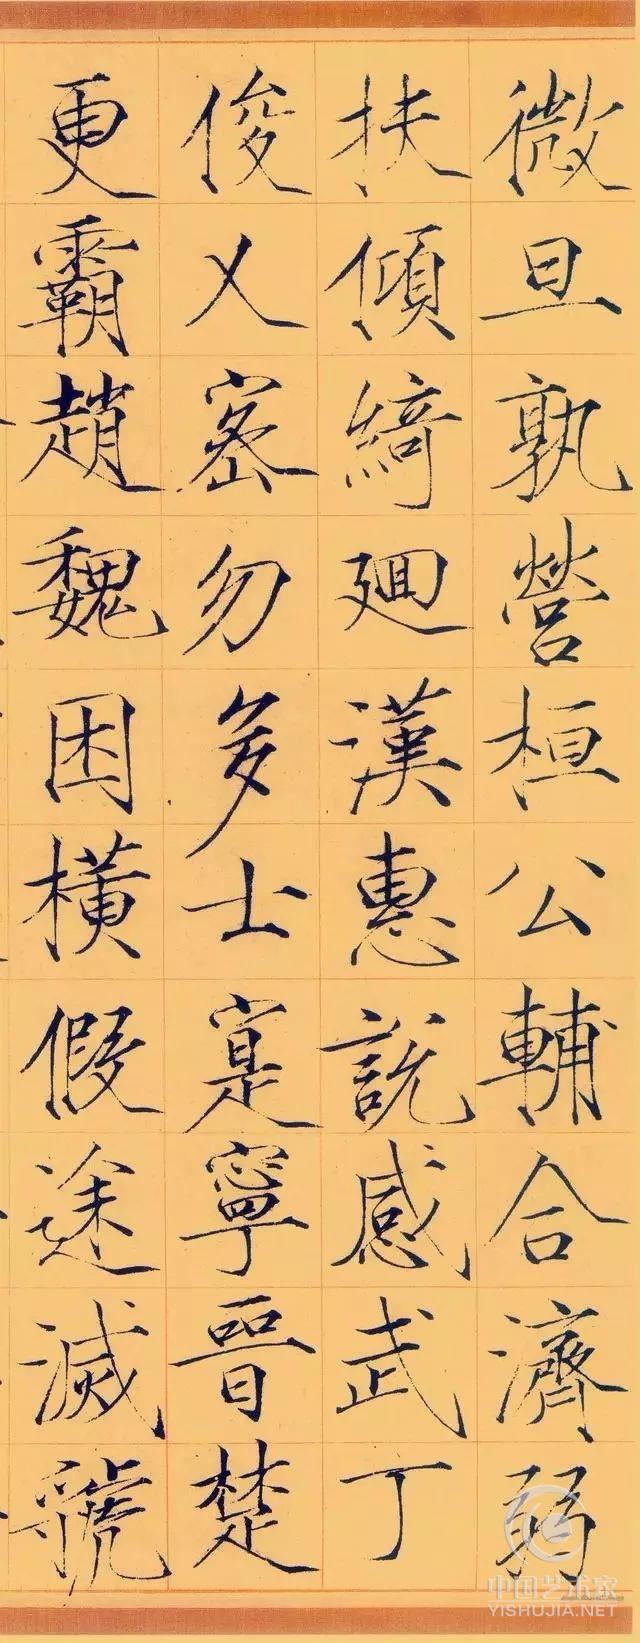 微旦孰營桓公輔合濟弱
扶傾綺廻漢惠說感武丁
俊乂密勿多士寔寧晉楚
更霸趙魏困橫假途滅虢
中国艺术家
YISHUJIA.NET